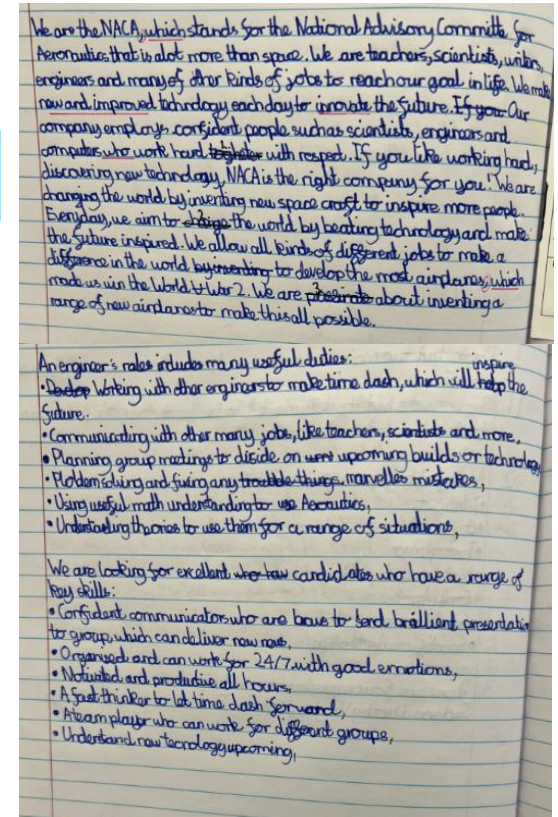 We are the NACA, which stands for the National Advisory Committe for
Aeronautics that is alot more than space. We are teachers, scientists, writers,
engineers and many of other kinds of jobs to reach our goal in life. We make
new and improved technology each day to innovate the future. If you Our
company employs confident people such as scientists, engineers and
computers who work hard togheter with respect. If you like working hard,
discovering new technology, NACA is the right company for you! We are
changing the world by inventing new space craft to inspire more people.
Everyday, we aim to change the world by beating technology and make
the future inspired. We allow all kinds of different jobs to make a
difference in the world by inventing to develop the most airplanes, which
made us win the World War 2. We are about inventing a
range of new airplanes to make this all possible.
An engineer's roles includes many useful duties:
inspire
• Develop Working with other engineers to make time dash, which will help the
future.
• Communicating with other many jobs, like teachers, scientists and more,
• Planning group meetings to diside on upcoming builds or technology,
• Ploblem solving and fixing any trouble things, marvelles mistakes,
• Using useful math understanding to use Aeonautics,
• Understanding theories to use them for a range of situations,
We are looking for excellent who how candidates who have a range of
key skills:
• Confident communicators who are brave to send brillient presentation
to group, which can deliver new news,
• Organised and can work for 24/7 with good emotions,
• Motivated and productive all hours,
• A fast thinker to let time dash forward,
• A team player who can work for different groups,
• Understand new tecnology upcoming,